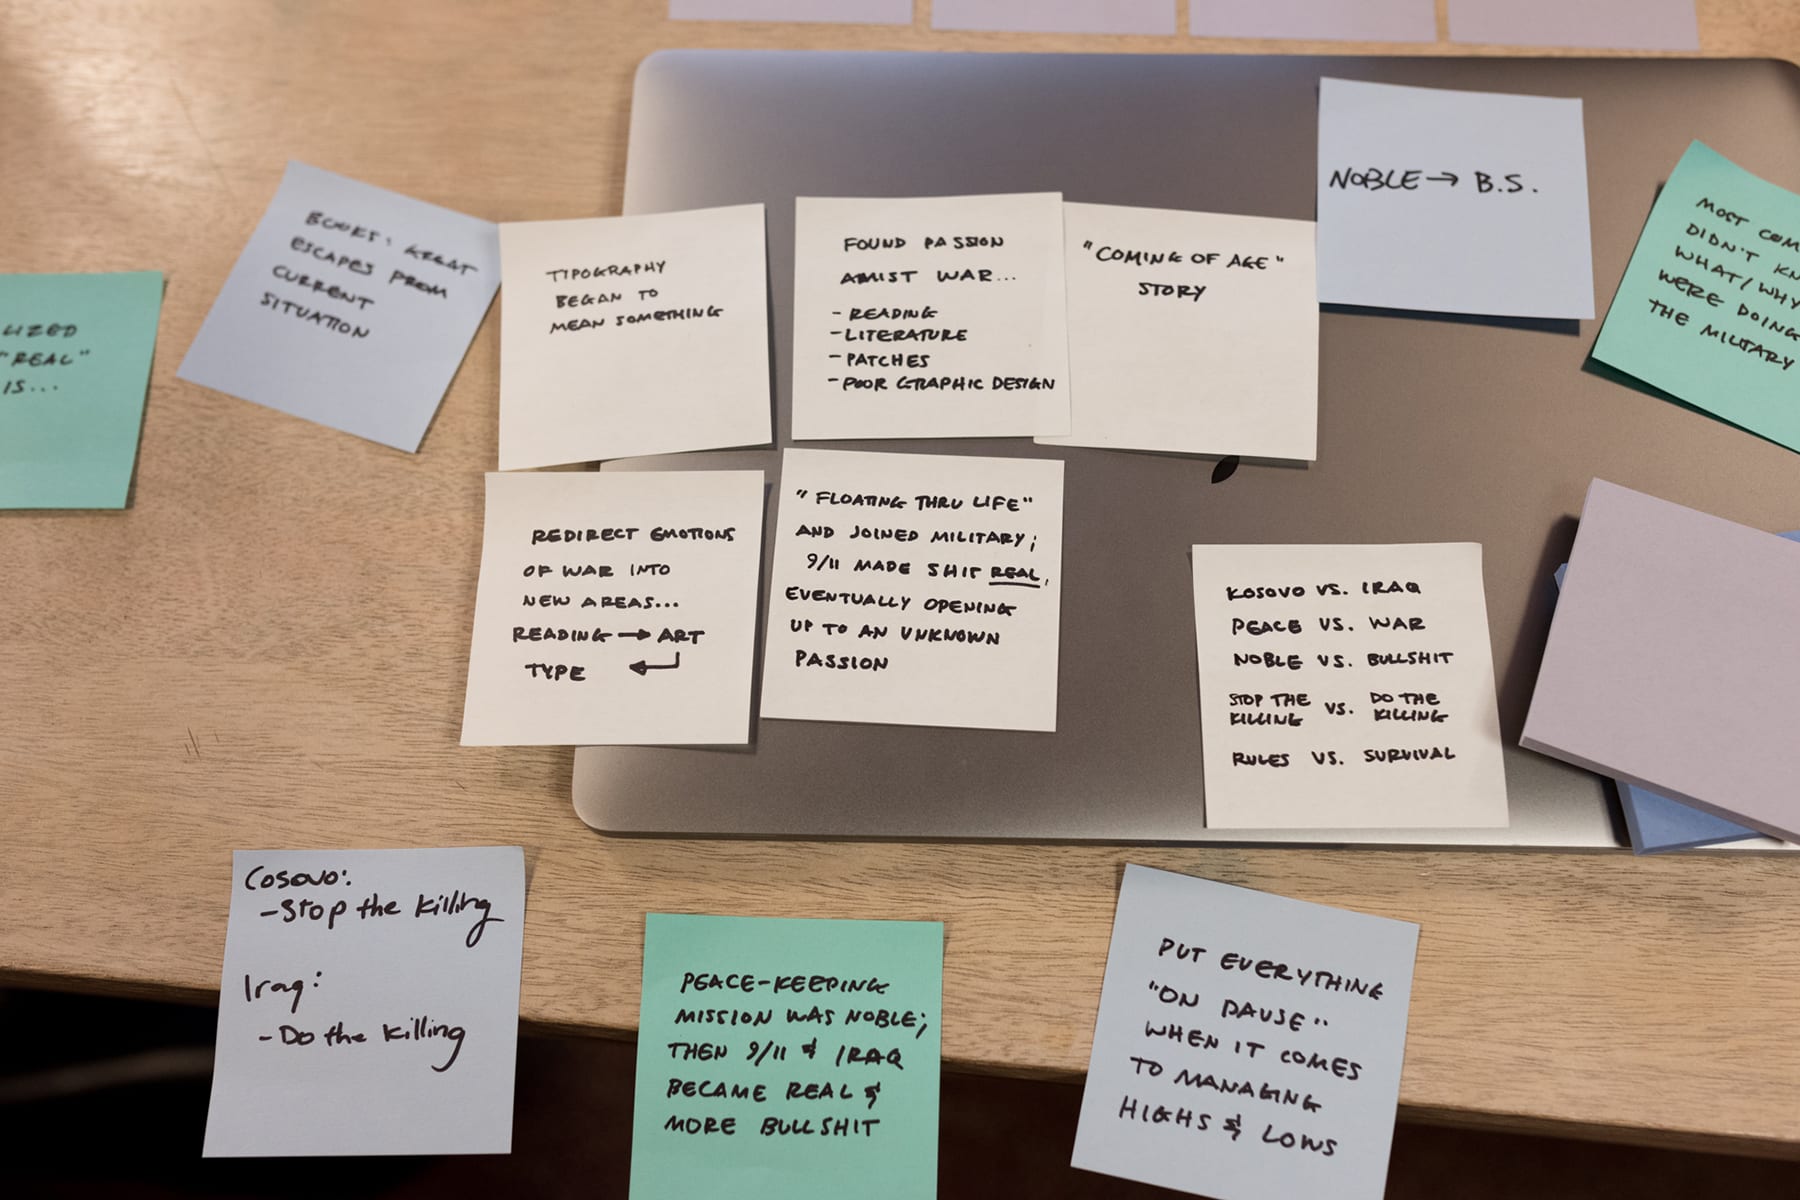 LIZED
"REAL"
IS...
BOOKS: GREAT
ESCAPES FROM
CURRENT
SITUATION
TIPOGRAPHY
BEGAN TO
MEAN SOMETHING
FOUND PASSION
AMIST WAR...
- READING
- LITERATURE
- PATCHES
- POOR GRAPHIC DESIGN
"COMING OF AGE"
STORY
NOBLE → B.S.
MOST COM
DIDN'T KN
WHAT/WHY
WERE DOING
THE MILITARY
REDIRECT EMOTIONS
OF WAR INTO
NEW AREAS...
READING → ART
TYPE ←
"FLOATING THRU LIFE"
AND JOINED MILITARY;
9/11 MADE SHIT REAL,
EVENTUALLY OPENING
UP TO AN UNKNOWN
PASSION
KOSOVO VS. IRAQ
PEACE VS. WAR
NOBLE VS. BULLSHIT
STOP THE KILLING VS. DO THE KILLING
RULES VS. SURVIVAL
Cosovo:
- Stop the killing
Iraq:
- Do the killing
PEACE-KEEPING
MISSION WAS NOBLE;
THEN 9/11 & IRAQ
BECAME REAL &
MORE BULLSHIT
PUT EVERYTHING
"ON PAUSE"
WHEN IT COMES
TO MANAGING
HIGHS & LOWS